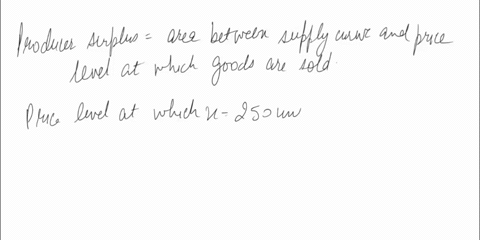 Producer surplus = area between supply curve and price
level at which goods are sold.
Price level at which x = 250 un